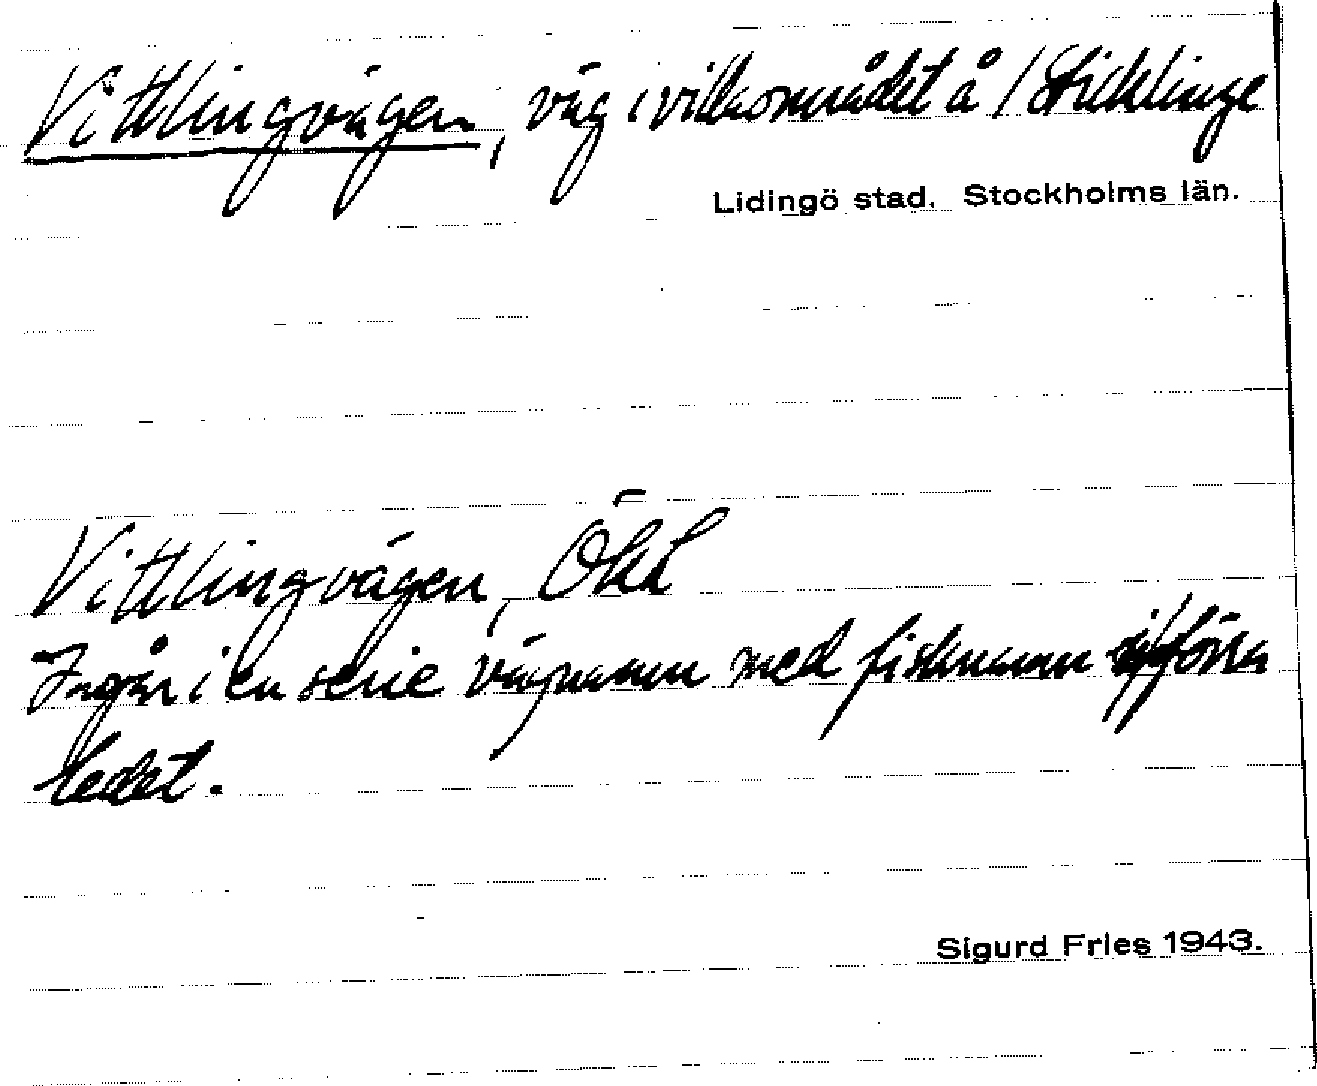 Vittlingvägen, väg i villaområdet å / Sticklinge
Lidingö stad. Stockholms län.
Vittlingvägen, ÖKL
Ingår i en serie vägnamn med fisknamn i förra
ledet.
Sigurd Fries 1943.